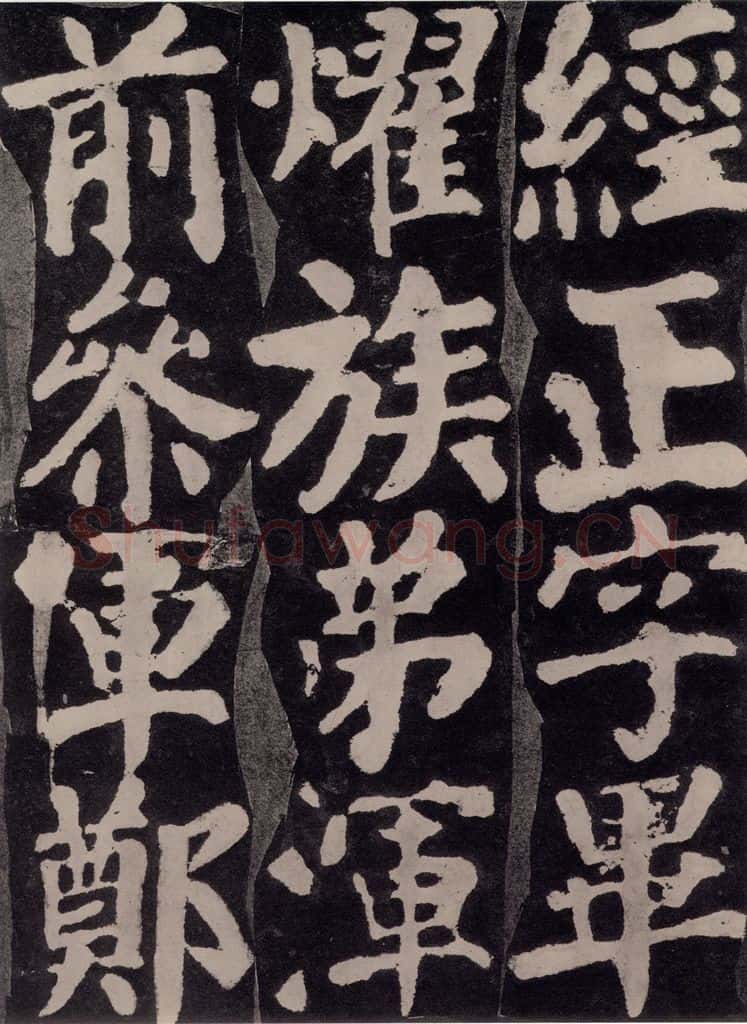 經正字畢
燿族弟渾
前參軍鄭
Shufawang.CN